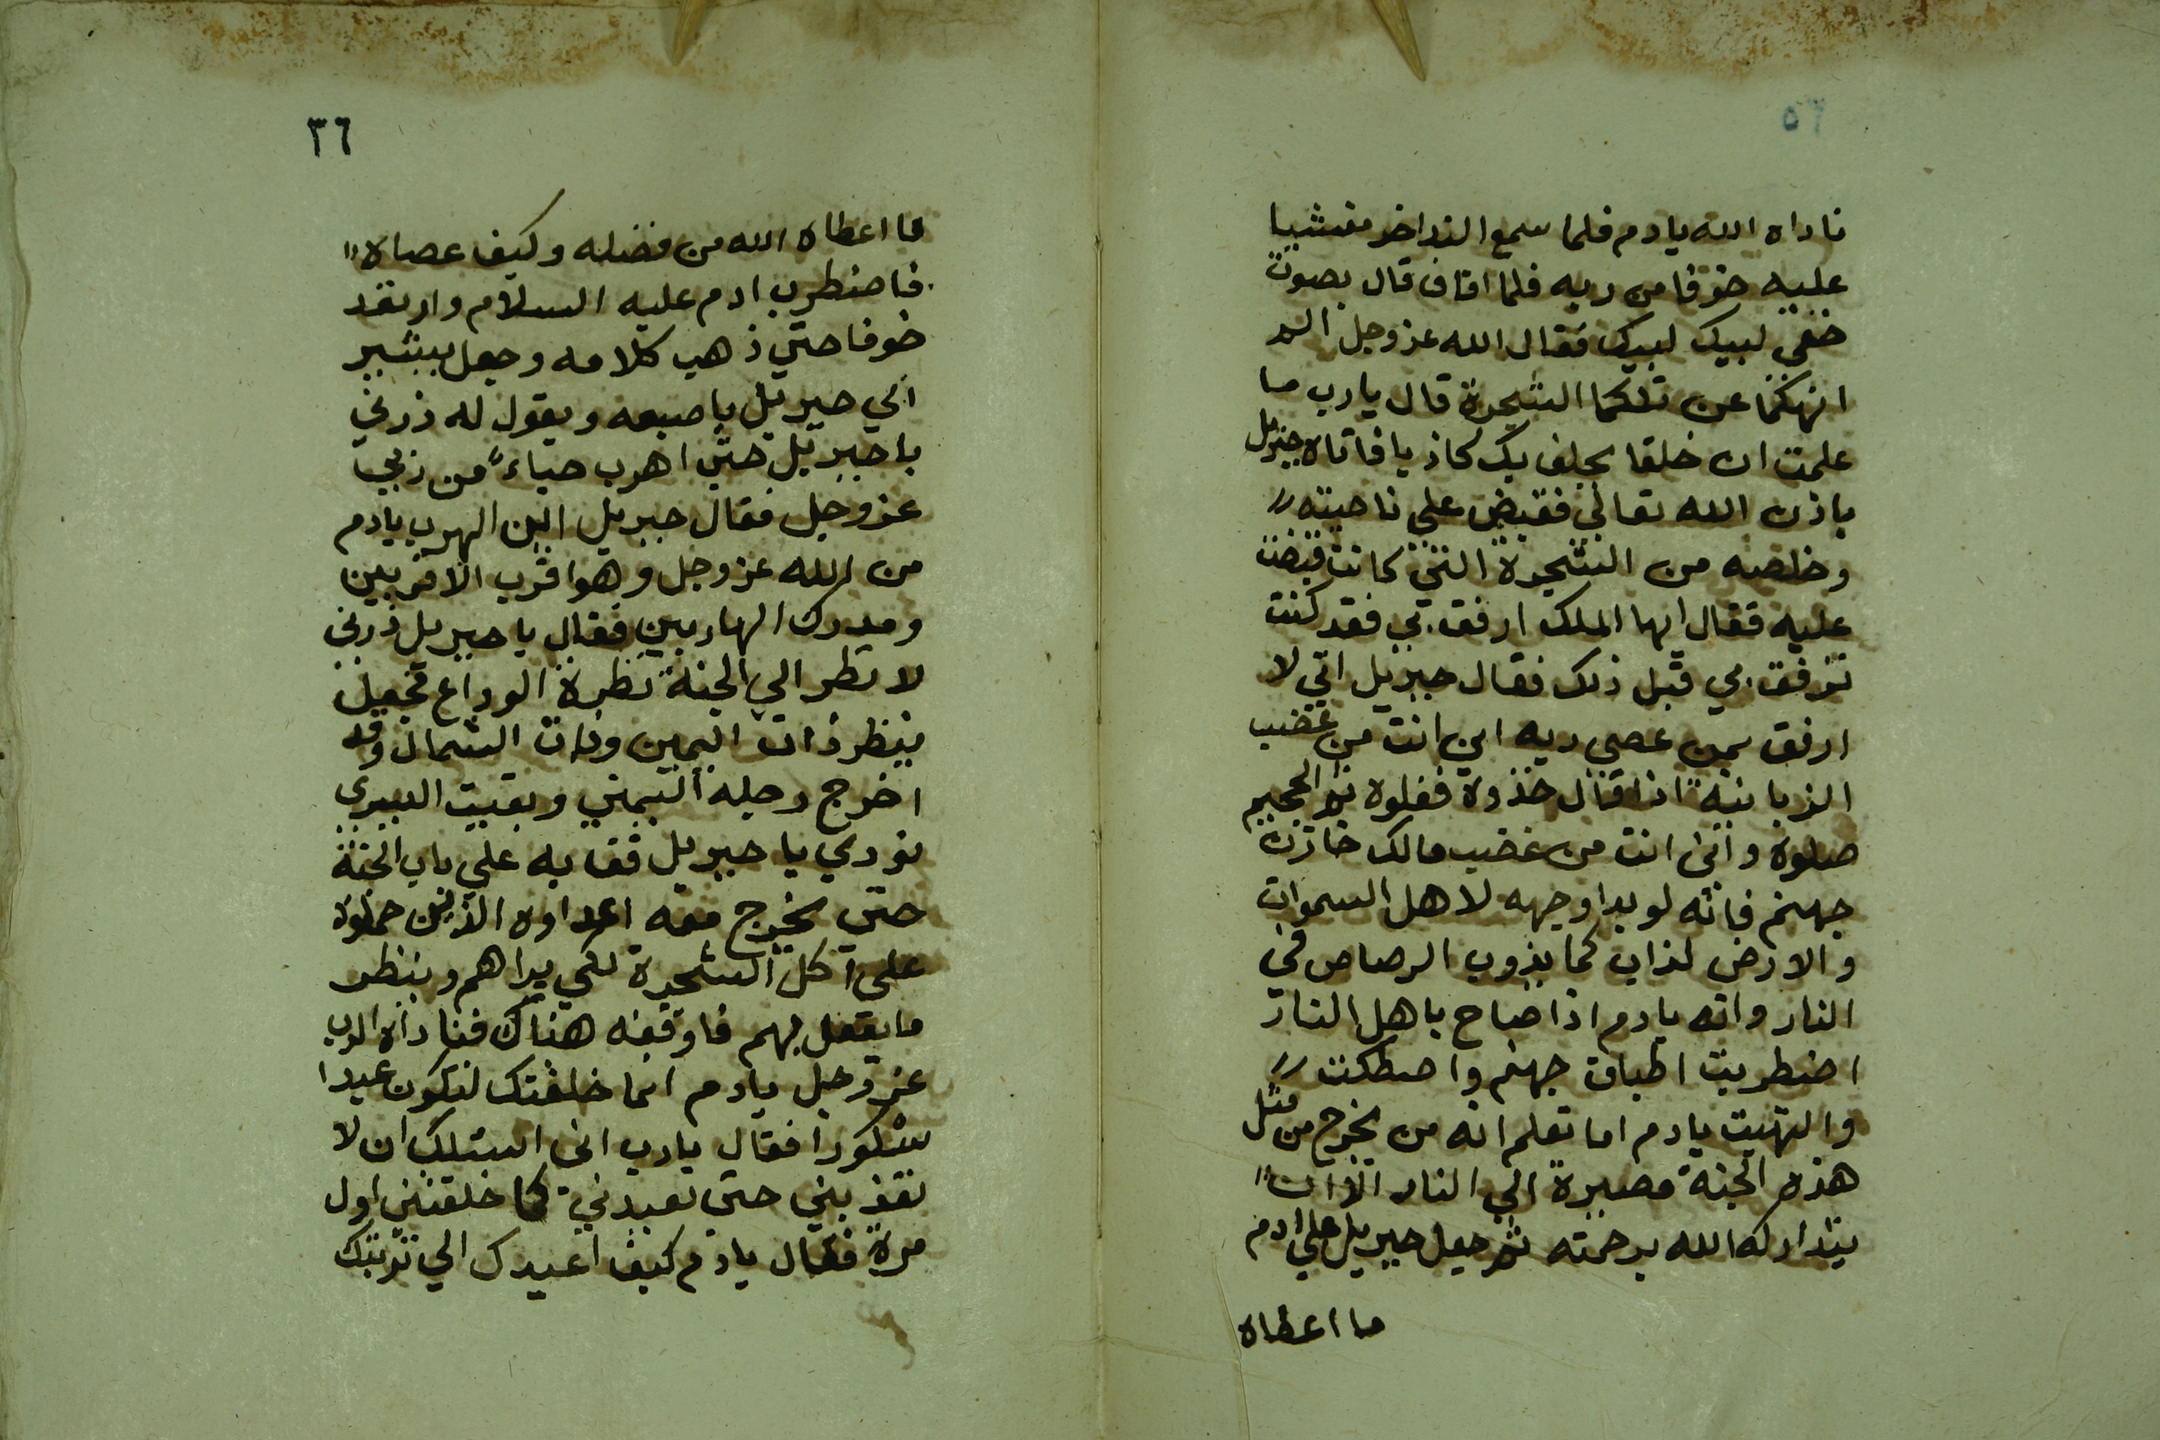 ٥٦
ناداه الله يادم فلما سمع الندا خر مغشيا
عليه خوفا من ربه فلما افاق قال بصوت
خفي لبيك لبيك فقال الله عز وجل الم
انهكما عن تلكما الشجرة قال يارب ما
علمت ان خلقا يحلف بك كاذبا فاتاه جبريل
باذن الله تعالي فقبض علي ناحيته
وخلصه من الشجرة التي كانت قبضت
عليه فقال ايها الملك ارفق بي فقد كنت
ترفق بي قبل ذلك فقال جبريل اني لا
ارفق بمن عصى ربه اين انت من غضب
الزبانية اذا قال خذوه فغلوه ثم الجحيم
صلوه واين انت من غضب مالك خازن
جهنم فانه لو بدا وجهه لاهل السموات
والارض لذاب كما يذوب الرصاص في
النار وانه يادم اذا صاح باهل النار
اضطربت اطباق جهنم واصطكت
والتهبت يادم اما تعلم انه من يخرج من مثل
هذه الجنة مصيره الي النار الا ان
يتداركه الله برحمته ثم جعل جبريل علي ادم
ما اعطاه
٣٦
ما اعطاه الله من فضله وكيف عصاه
فاضطرب ادم عليه السلام وارتعد
خوفا حتي ذهب كلامه وجعل يشير
الي جبريل باصبعه ويقول له ذرني
يا جبريل حتي اهرب حياء من ربي
عز وجل فقال جبريل اين الهرب يادم
من الله عز وجل وهو اقرب الاقربين
ومدرك الهاربين فقال يا جبريل ذرني
لا نظر الي الجنة نظرة الوداع فجعل
ينظر ذات اليمين وذات الشمال وقد
اخرج رجله اليمني وبقيت اليسري
نودي يا جبريل قف به علي باب الجنة
حتي يخرج معه اعداوه الذين حملوه
على اكل الشجرة لكي يراهم وينظر
ما يفعل بهم فاوقفه هناك فناداه الرب
عز وجل يادم انما خلقتك لتكون عبدا
شكورا فقال يارب اني اسئلك ان لا
تعذبني حتي تعيدني كما خلقتني اول
مرة فقال يادم كيف اعيدك الي تربتك